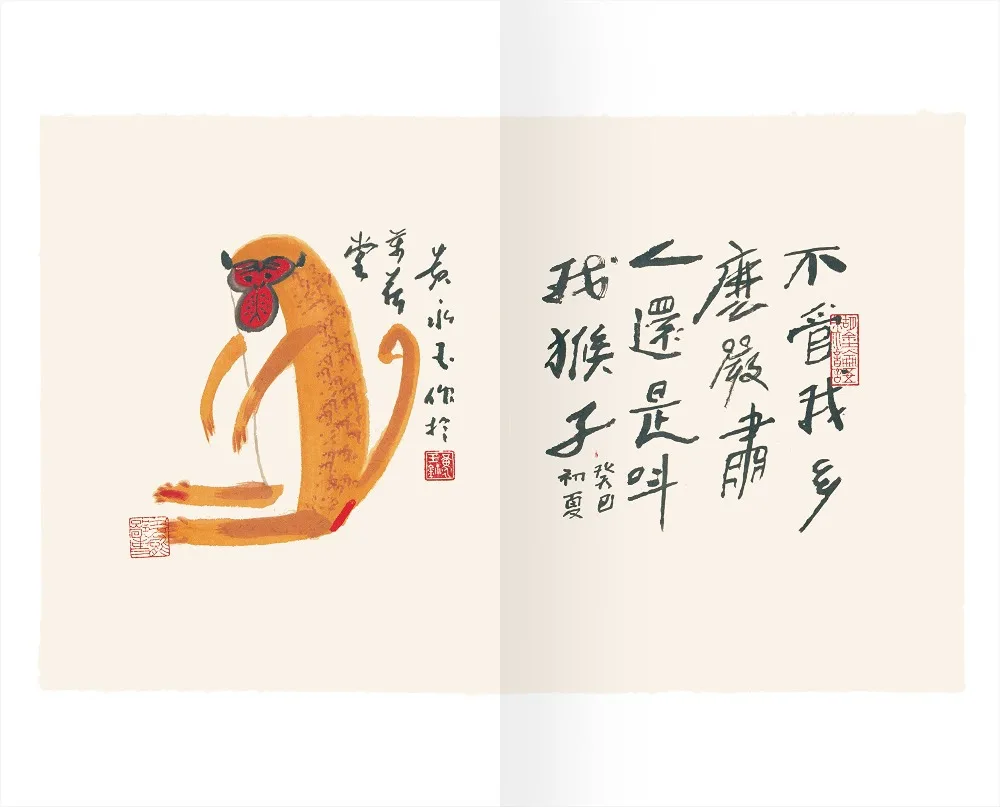 不管我多
麼嚴肅
人還是叫
我猴子
癸巳
初夏
黄永玉作於
萬荷
堂